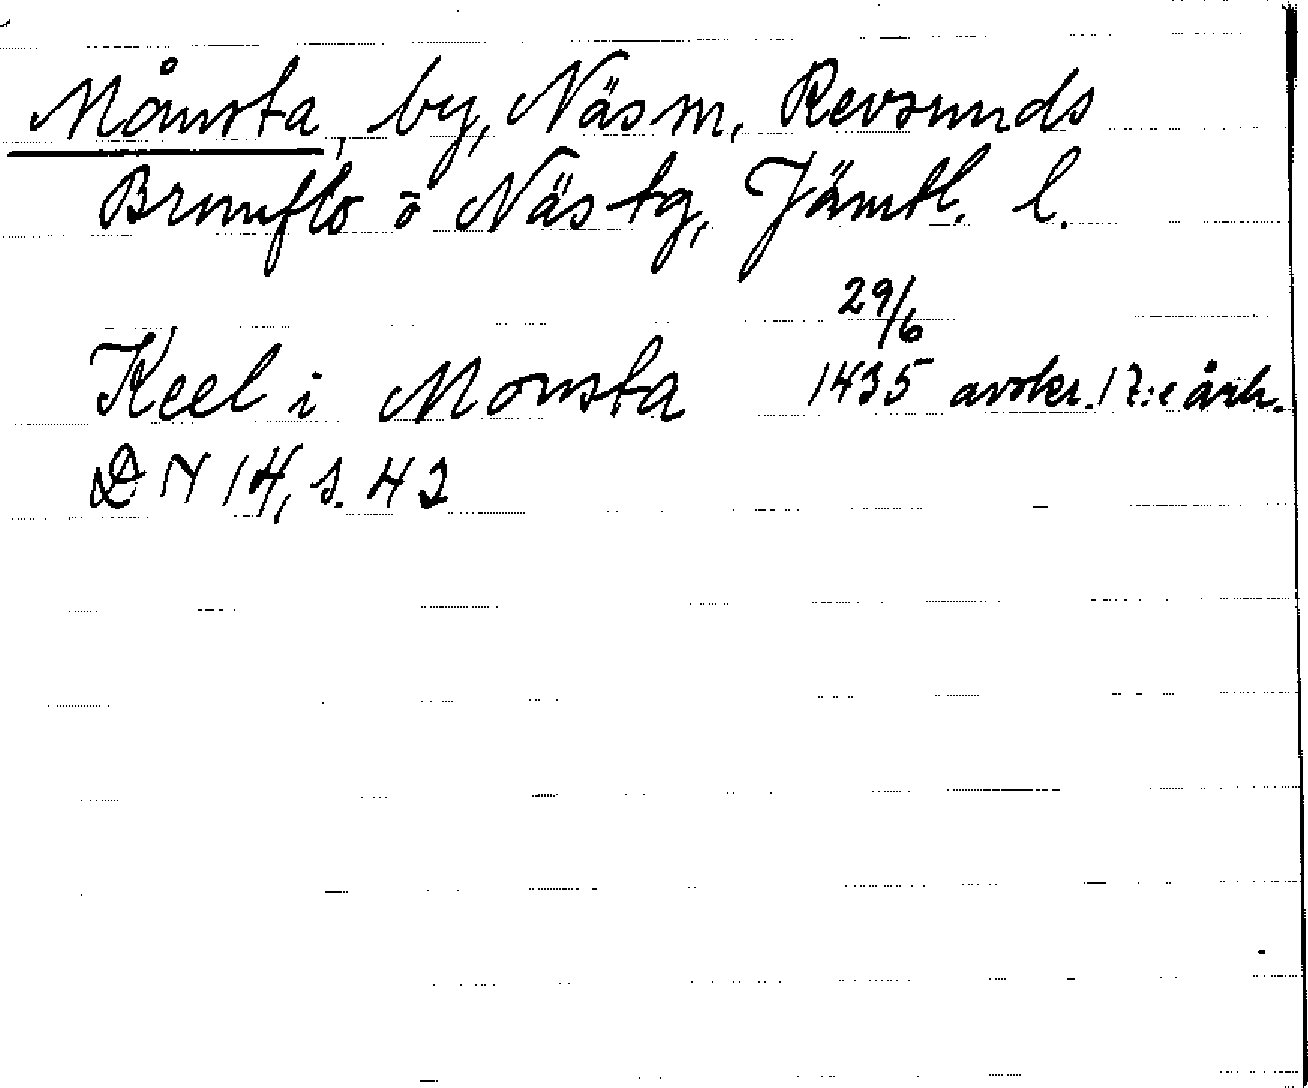 Månsta, by, Näs sn, Revsunds
Brunflo o Näs tg, Jämtl. l.
29/6
Keel i Monsta 1435 avskr. 17:e årh.
DN 14, s. 42